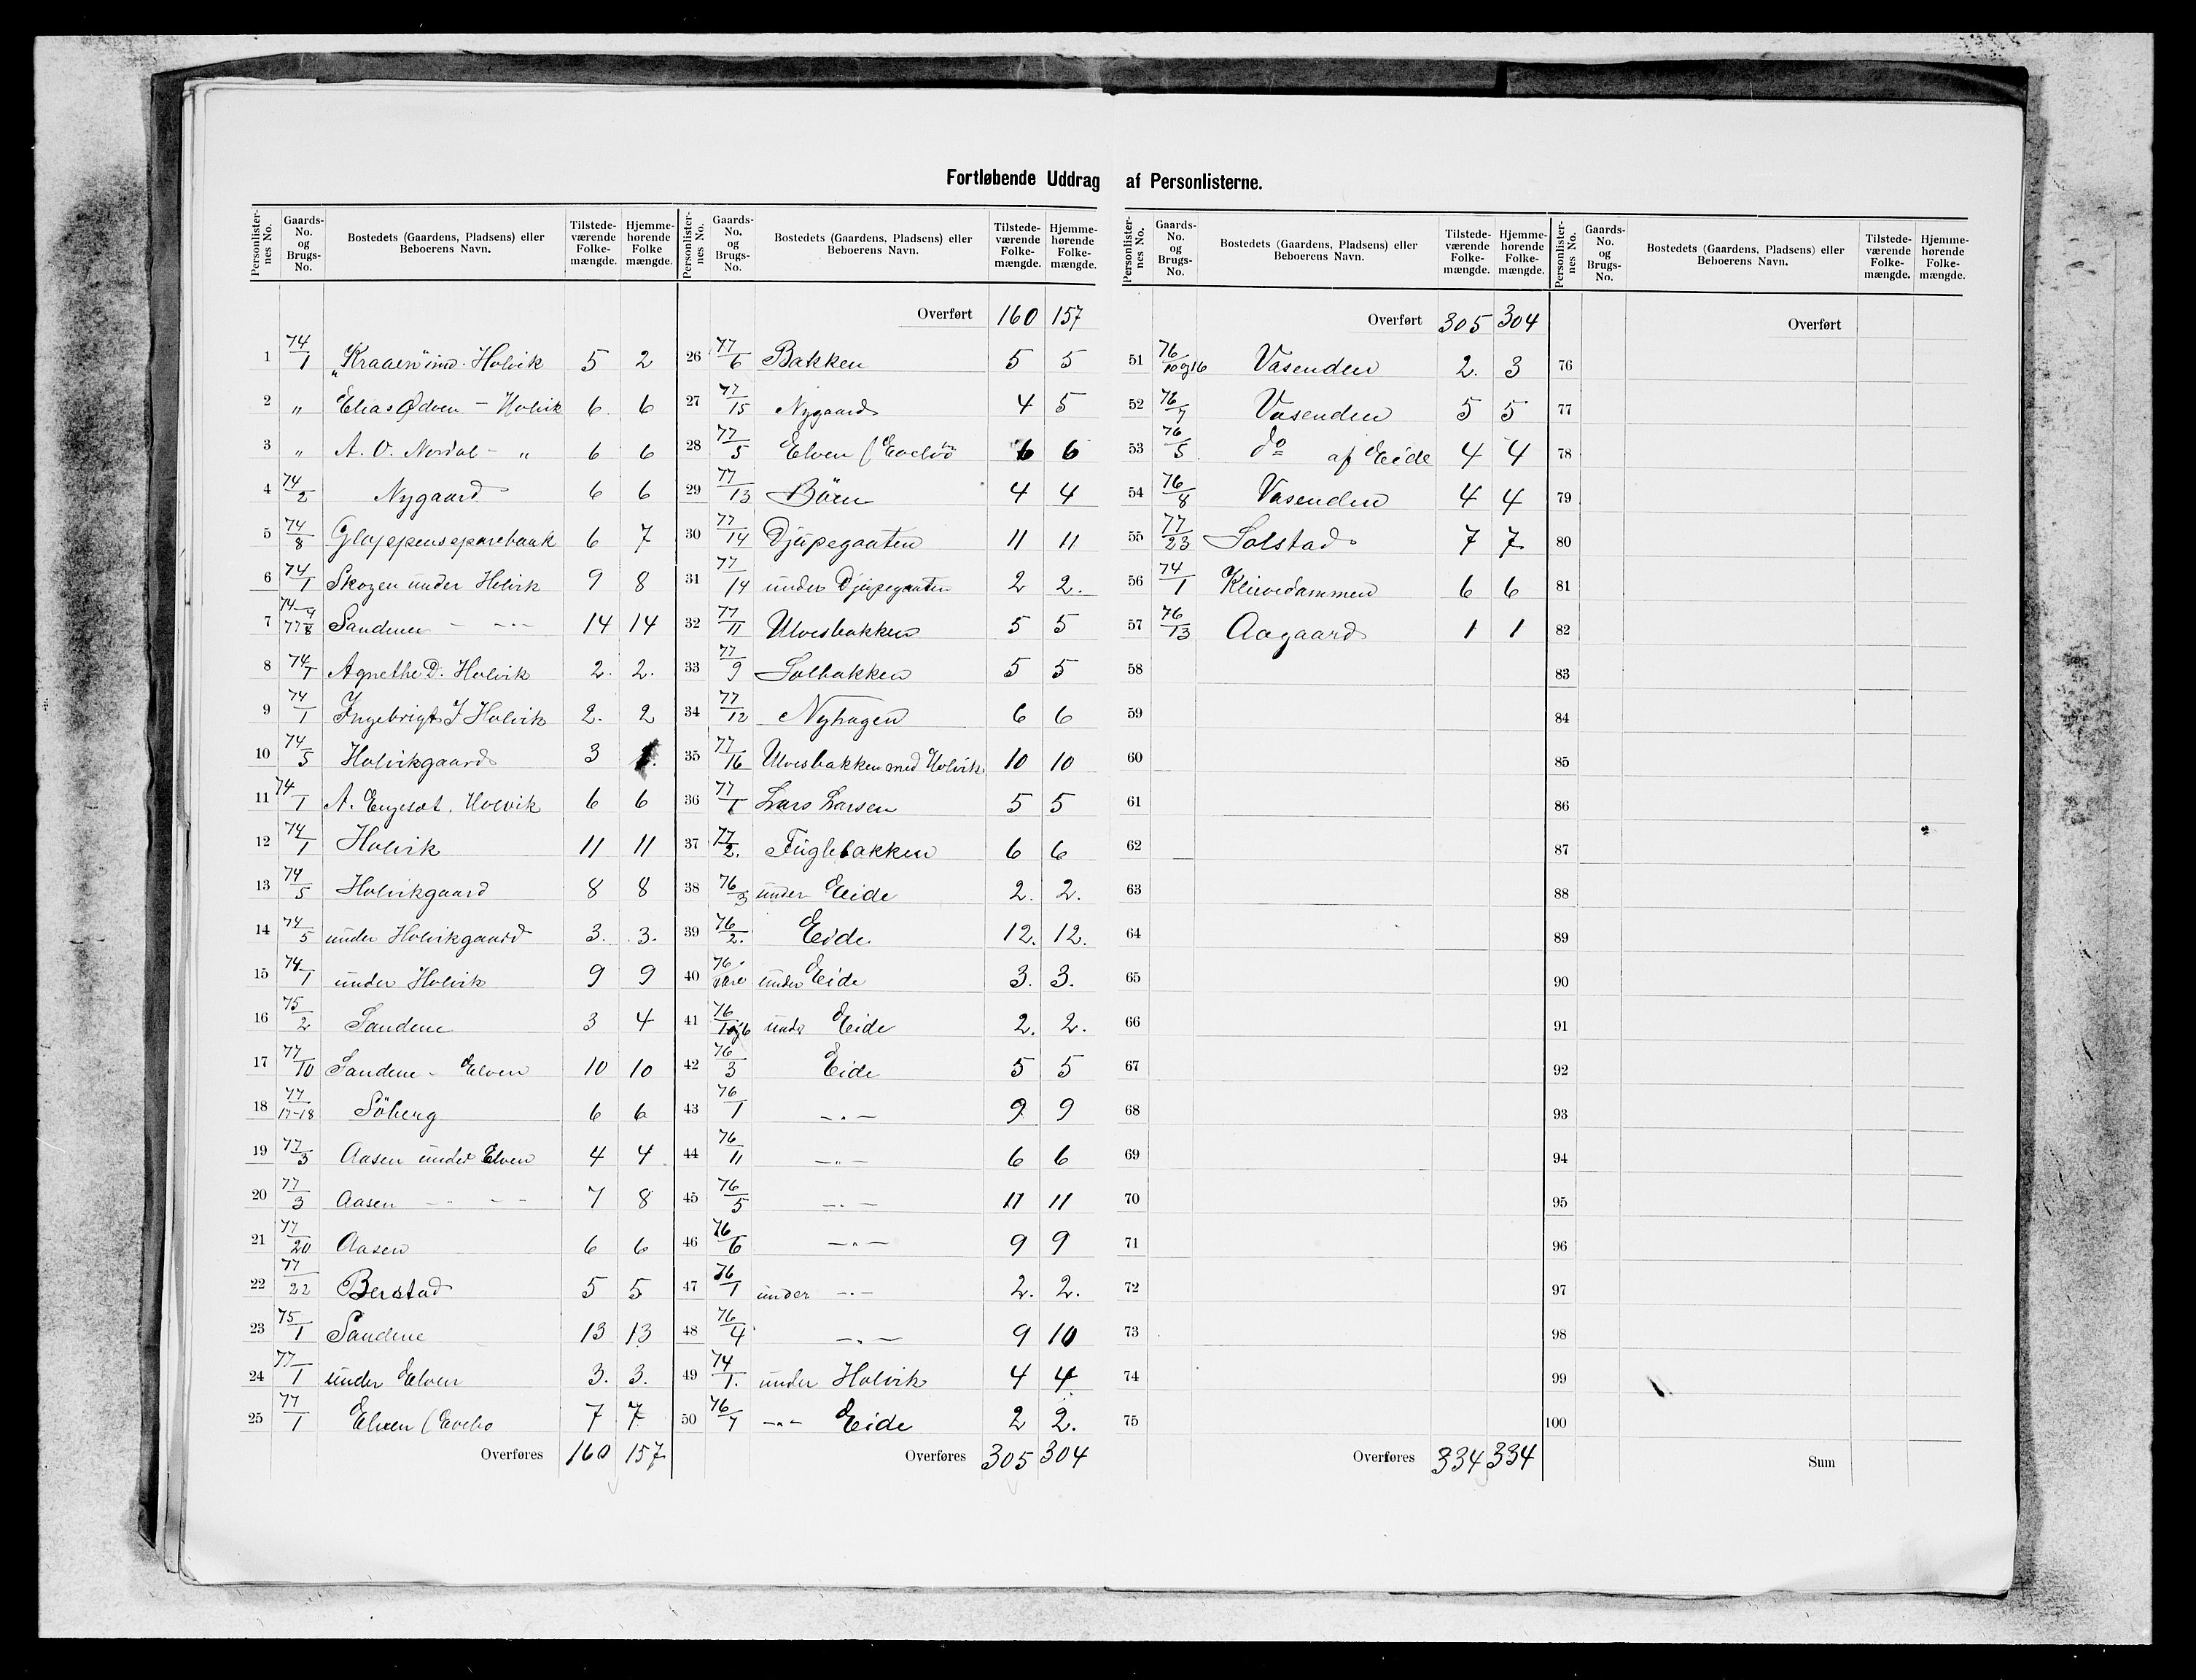 Fortløbende Uddrag af Personlisterne.
Personlister-nes No. Gaards-No. og Brugs-No. Bostedets (Gaardens, Pladsens) eller Beboerens Navn. Tilstede-værende Folke-mængde. Hjemme-hørende Folke mængde.
1 74/1 "Kraaen" ind. Holvik 5 2
2 " Elias Ødven - Holvik 6. 6
3 " A. O. Nordal - " 6 6
4 74/2 Nygaard 6 6
5 74/8 Gloppens sparebank 6 7
6 74/1 Skogen under Holvik 9 8
7 74-9 77/8 Sandene - -"- 14 14
8 74/1 Agnethe D. Holvik 2. 2.
9 74/1 Ingebrigt J Holvik 2. 2
10 74/5 Holvikgaard 3
11 74/1 A. Engeset. Holvik 6 6
12 74/1 Holvik 11 11
13 74/5 Holvikgaard 8 8
14 74/5 under Holvikgaard 3. 3.
15 74/1 under Holvik 9 9
16 75/2 Sandene 3 4
17 77/10 Sandene - Elven 10 10
18 77/17-18 Söberg 6 6
19 77/3 Aasen under Elven 4 4
20 77/3 Aasen -"- - - 7 8
21 77/20 Aasen 6 6
22 77/22 Berstad 5 5
23 75/1 Sandene 13 13
24 77/1 under Elven 3. 3.
25 77/1 Elven (Evebö 7 7
Overføres 160 157
Personlister-nes No. Gaards-No. og Brugs-No. Bostedets (Gaardens, Pladsens) eller Beboerens Navn. Tilstede-værende Folke-mængde. Hjemme-hørende Folke-mængde.
Overført 160 157
26 77/6 Bakken 5 5
27 77/15 Nygaard 4 5
28 77/5 Elven (Evebö 6 6
29 77/13 Börn 4 4
30 77/14 Djupegaaten 11 11
31 77/14 under Djupegaaten 2 2.
32 77/11 Ulvesbakken 5 5
33 77/9 Solbakken 5 5
34 77/12 Nyhagen 6 6
35 77/16 Ulvesbakken med Holvik 10 10
36 77/1 Lars Larsen 5 5
37 77/2. Fuglebakken 6 6
38 76/3 under Eide 2. 2.
39 76/2. Eide. 12. 12.
40 76 under Eide 3. 3.
41 76/1og6 under Eide 2. 2.
42 76/3 Eide 5 5
43 76/1 -"- 9 9
44 76/11 -"- 6 6
45 76/5 -"- 11 11
46 76/6 -"- 9 9
47 76/1 under -"- 2. 2.
48 76/4 -"- 9 10
49 74/1. under Holvik 4 4
50 76/7 -"- Eide 2 2.
Overføres 305 304
Personlister-nes No. Gaards-No. og Brugs-No. Bostedets (Gaardens, Pladsens) eller Beboerens Navn. Tilstede-værende Folke-mængde. Hjemme-hørende Folke-mængde.
Overført 305 304
51 76/10og16 Vasenden 2. 3
52 76/7 Vasenden 5 5
53 76/5 do af Eide 4 4
54 76/8 Vasenden 4 4
55 77/23 Solstad 7 7
56 74/1 Klievedammen 6 6
57 76/13 Aagaard 1 1
58
59
60
61
62
63
64
65
66
67
68
69
70
71
72
73
74
75
Overføres 334 334
Personlister-nes No. Gaards-No. og Brugs-No. Bostedets (Gaardens, Pladsens) eller Beboerens Navn. Tilstede-værende Folke-mængde. Hjemme-hørende Folke-mængde.
Overført
76
77
78
79
80
81
82
83
84
85
86
87
88
89
90
91
92
93
94
95
96
97
98
99
100
Sum